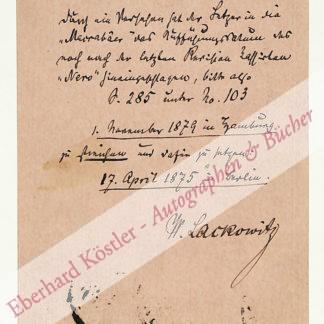 durch ein Versehen hat der Setzer in die
„Maccabäer“ das Aufführungsdatum des
noch nach der letzten Revision
„Nero“ hineingeschlagen, bitte also
S. 285 unter No. 103
1. November 1879 in Hamburg.
zu streichen und dafür zu setzen:
17. April 1875 in Berlin.
W. Lackowitz
Eberhard Köstler - Autographen & Bücher